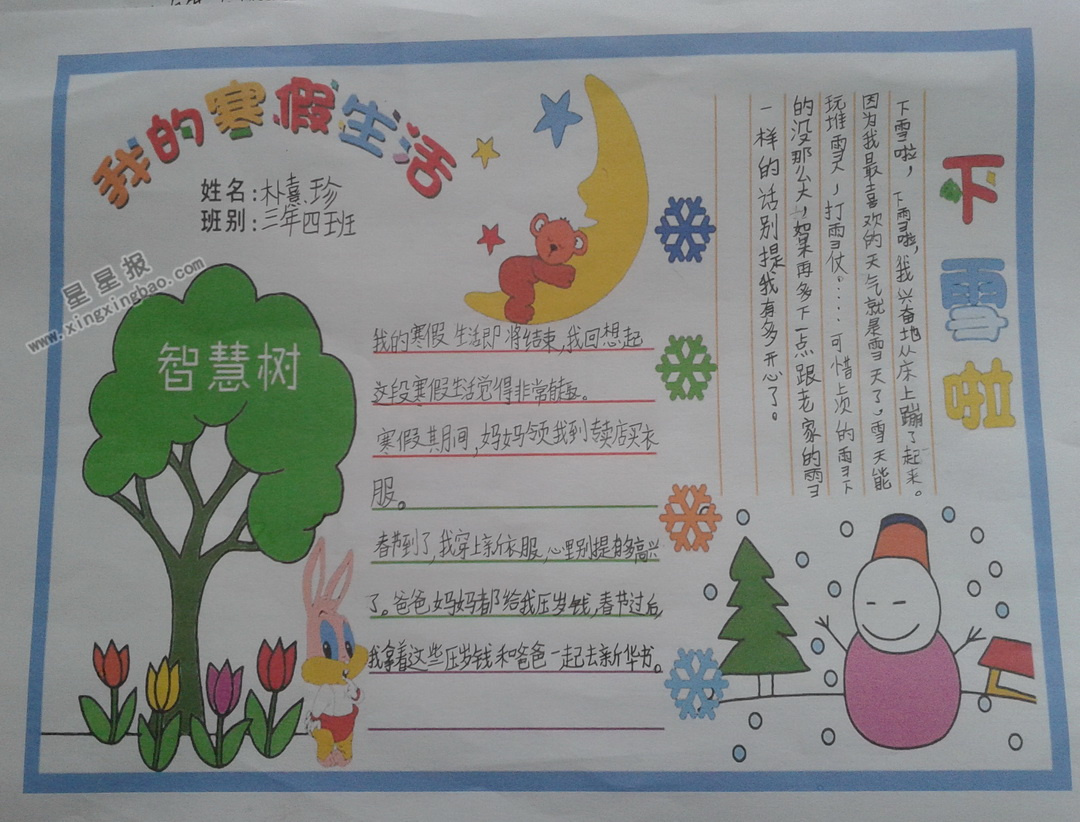 我的寒假生活
姓名:朴熹珍
班别:三年四班
星星报
www.xingxingbao.com
智慧树
我的寒假生活即将结束,我回想起
这段寒假生活觉得非常有趣。
寒假其期间,妈妈领我到专卖店买衣
服。
春节到了,我穿上新衣服,心里别提有多高兴
了。爸爸妈妈都给我压岁钱,春节过后,
我拿着这些压岁钱和爸爸一起去新华书。
下雪啦
下雪啦,下雪啦,我兴奋地从床上蹦了起来。
因为我最喜欢的天气就是雪天了,雪天能
玩堆雪人,打雪仗……可惜上次的雪下
的没那么大,如果再多下一点跟老家的雪
一样的话别提我有多开心了。